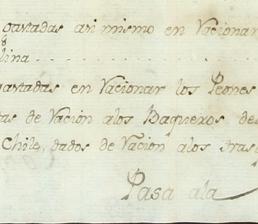 gastadas asi mismo en Vacionar
lina
gastadas en Vacionar los Peones
as de Vacion alos Baqueros de
Chile, dados de Vacion alos tras
Pasa ala